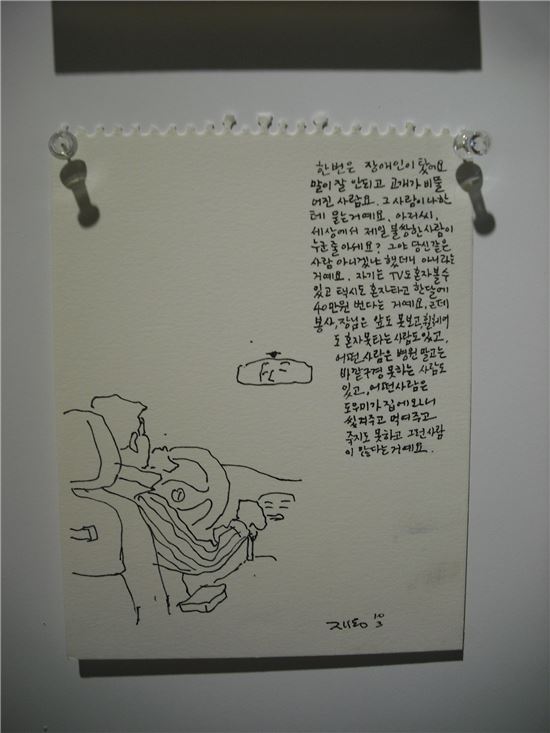 한번은 장애인이 탔어요
말이 잘 안되고 고개가 비뚤
어진 사람요. 그 사람이 나한
테 묻는거예요. 아저씨,
세상에서 제일 불쌍한 사람이
누군줄 아세요? 그야 당신같은
사람 아니겠냐 했더니 아니라는
거예요. 자기는 TV도 혼자 볼수
있고 택시도 혼자타고 한달에
40만원 번다는 거예요. 근데
봉사, 장님은 앞도 못보고, 휠체어
도 혼자 못타는 사람도 있고,
어떤 사람은 병원 말고는
바깥구경 못하는 사람도
있고, 어떤사람은
도우미가 집에 와서
씻겨주고 먹여주고
죽지도 못하고 그런 사람
이 많다는 거예요.
재동 10/3